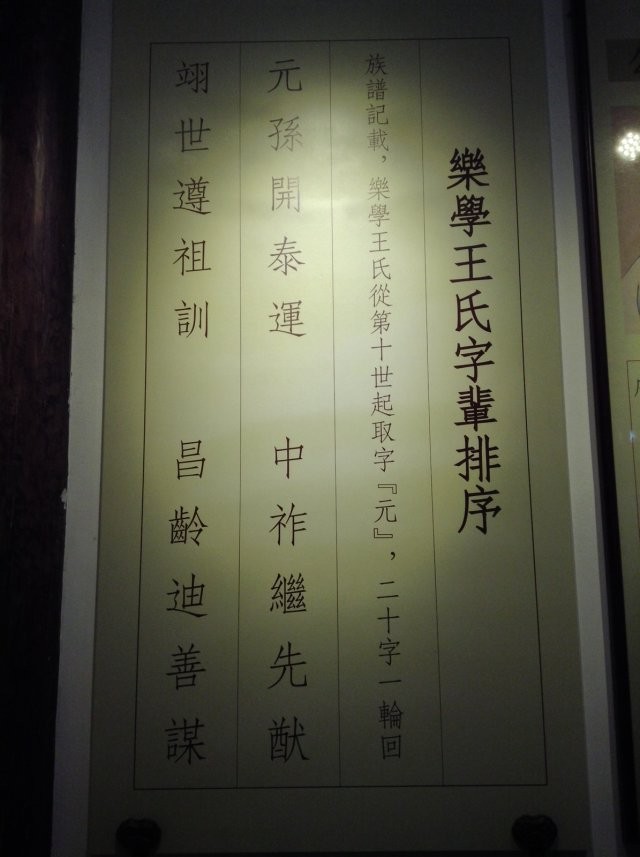 樂學王氏字輩排序
族譜記載，樂學王氏從第十世起取字『元』，二十字一輪回
元孫開泰運　中祚繼先猷
翊世遵祖訓　昌齡迪善謀